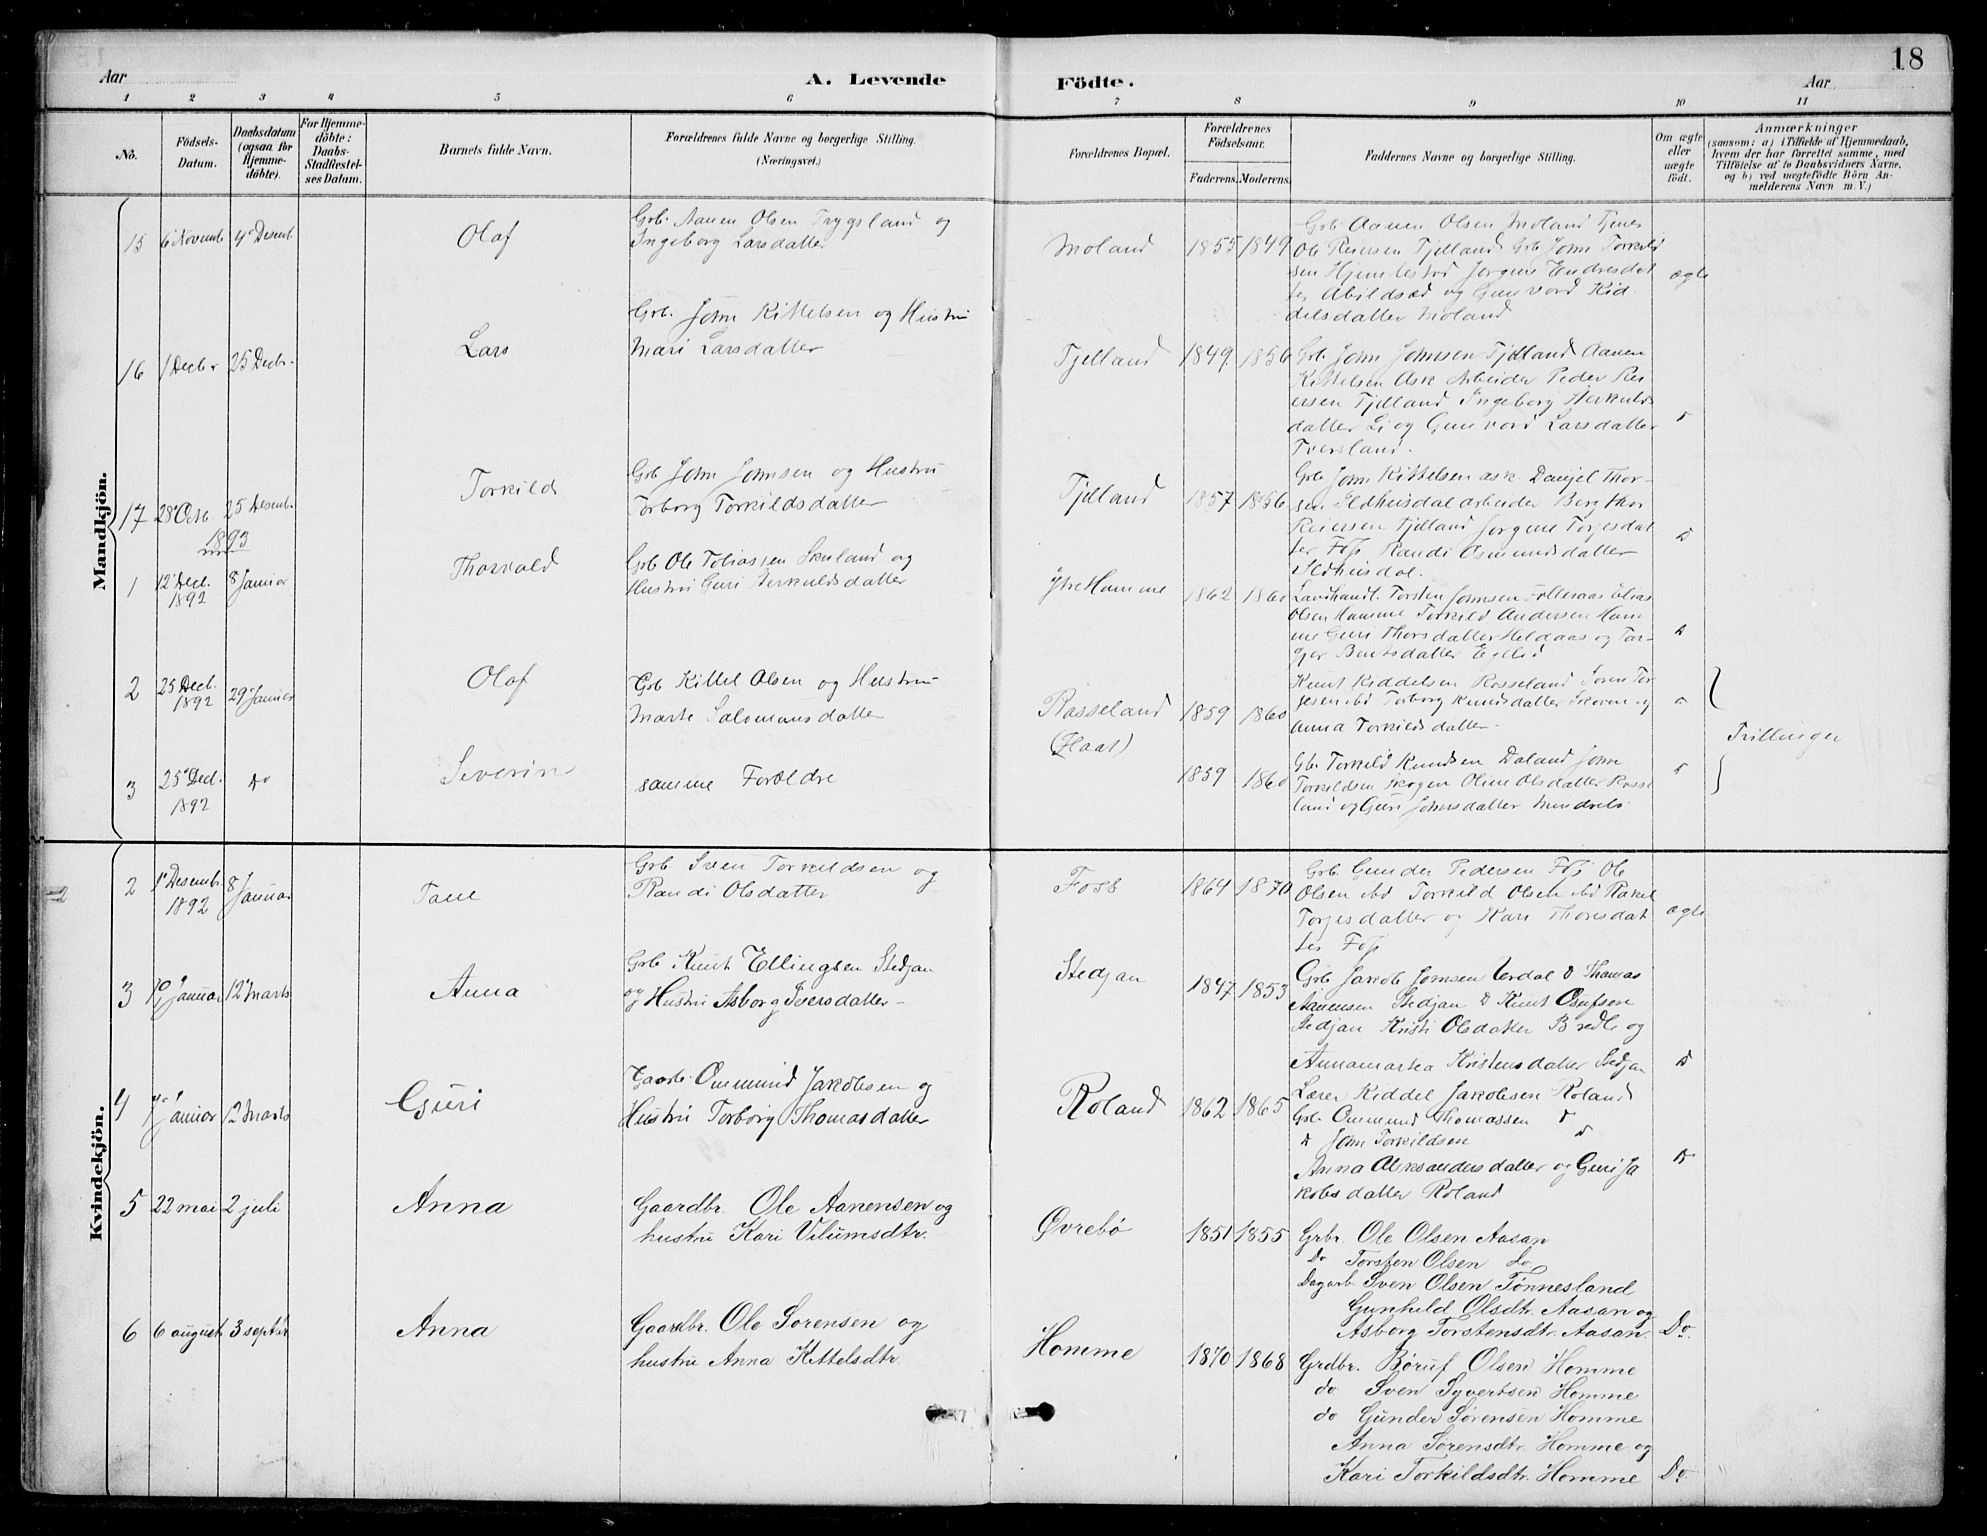 18
Aar
A. Levende Födte.
Aar
1 2 3 4 5 6 7 8 9 10 11
No.
Födsels-
Datum.
Daabsdatum
(ogsaa for
Hjemme-
döbte).
For Hjemme-
döbte:
Daabs-
Stadfæstel-
ses Datum.
Barnets fulde Navn.
Forældrenes fulde Navne og borgerlige Stilling.
(Næringsvei.)
Forældrenes Bopæl.
Forældrenes
Födselsaar.
Faderens. Moderens.
Faddernes Navne og borgerlige Stilling.
Om ægte
eller
uægte
födt.
Anmærkninger
(saasom: a) i Tilfælde af Hjemmedaab,
hvem der har forrettet samme, med
Tilföielse af to Daabsvidners Navne.
og b) ved uægtefödte Börn An-
melderens Navn m. V.)
Mandkjön.
15 6 Novemb 4 Desemb.
Olaf
Grb. Aanen Olsen Trygsland og
Ingeborg Larsdatter
Moland
1855 1849
Grb Aanen Olsen Moland Tjenes
Ole Reiersen Tjelland Grb John Torkild
sen Hjemlestad Jorgine Endresdat
ter Abildsæd og Gunvord Kid
delsdatter Moland
ægte
16 1 Decbr 25 Decbr.
Lars
Grb. John Kittelsen og Hustru
Mari Larsdatter
Tjelland
1849. 1856
Grb John Johnsen Tjelland Aanen
Kittelsen Ask Arbeider Peder Rei
ersen Tjelland Ingeborg Herkulds
datter Li og Gunvord Larsdatter
Tversland.
D
17 28 Octb. 25 Desemb.
Torkild
Grb John Johnsen og Hustru
Torborg Torkildsdatter
Tjelland
1857 1856
Grb John Kittelsen Ask Danjel Thor-
sen Ildhusdal arbeider Bergthor
Reiersen Tjelland Jorgine Torjesdat
ter Foss Randi Osmundsdatter
Ildhusdal.
D
1893
1 12 Decl. 1892 8 Januar
Thorvald
Grb Ole Tobiassen Skuland og
Hustru Guri Herkuldsdatter
Ytre Homme
1862 1860
Landhandl. Torsten Johnsen Follesaas Elias
Olsen Homme Torkild Andersen Hom
me Guri Thorsdatter Heldaas og Tor-
gjer Bentsdatter Egelid
D
2 25 Decb. 1892 29 Januar
Olaf
Grb Kittel Olsen og Hustru
Marte Salomonsdatter
Rosseland
(Haat)
1859 1860
Knut Kiddelsen Rosseland Soren Tor
gesen ibd Torborg Knudsdatter Skoren og
Anna Torkildsdatter
D
Tvillinger
3 25 Decl. 1892 Do
Severin
samme Forældre
1859 1860
Gbr Torkild Knudsen Daland John
Torkildsen Skogen Oline Olsdatter Rosse
land og Guri Johnsdatter
D
Kvindekjön.
2 1 Desemb 1892 8 Januar
Tone
Grb Sven Torkildsen og
Randi Olsdatter
Foss
1864 1870
Grb Gunder Pedersen Foss Ole
Olsen ibd Torkild Olsen ibd Rakel
Torjesdatter og Kari Thorsdat
ter Foss
ægte
3 10 Januar 12 Marts
Anna
Grb Knut Ellingsen Stedjan
og Hustru Asborg Iversdatter
Stedjan
1847 1853
Grb Jakob Jomsen Verdal D Thomas
Aanensen Stedjan D Knut Osufsen
Stedjan Kristi Olsdatter Bredle og
Annamartea Kristensdatter Stedjan
D
4 7 Januar 12 Marts
Guri
Gaardb. Ommund Jakobsen og
Hustru Torborg Thomasdatter
Roland
1862 1865
Lærer Kiddel Jakobsen Roland
Grb Ommund Thomassen D
D John Torkildsen D
Anna Aleksandersdatter og Guri Ja
kobsdatter Roland
D
5 22 mai 2 juli
Anna
Gaardbr. Ole Aanensen og
hustru Kari Vilumsdtr.
Øvrebø
1851 1855
Grbr. Ole Olsen Aasan
Do Torsten Olsen do
Dagarb. Sven Olsen Tønnesland
Gunhild Olsdtr. Aasan og
Asborg Torstensdtr. Aasan.
Do.
6 6 august 3 septbr
Anna
Gaardbr. Ole Sørensen og
hustru Anna Kittelsdtr.
Homme
1870 1868
Grdbr. Børuf Olsen Homme
do Sven Syvertsen Homme
do Gunder Sørensen Homme
Anna Sørensdtr. Homme og
Kari Torkildsdtr. Homme
Do.